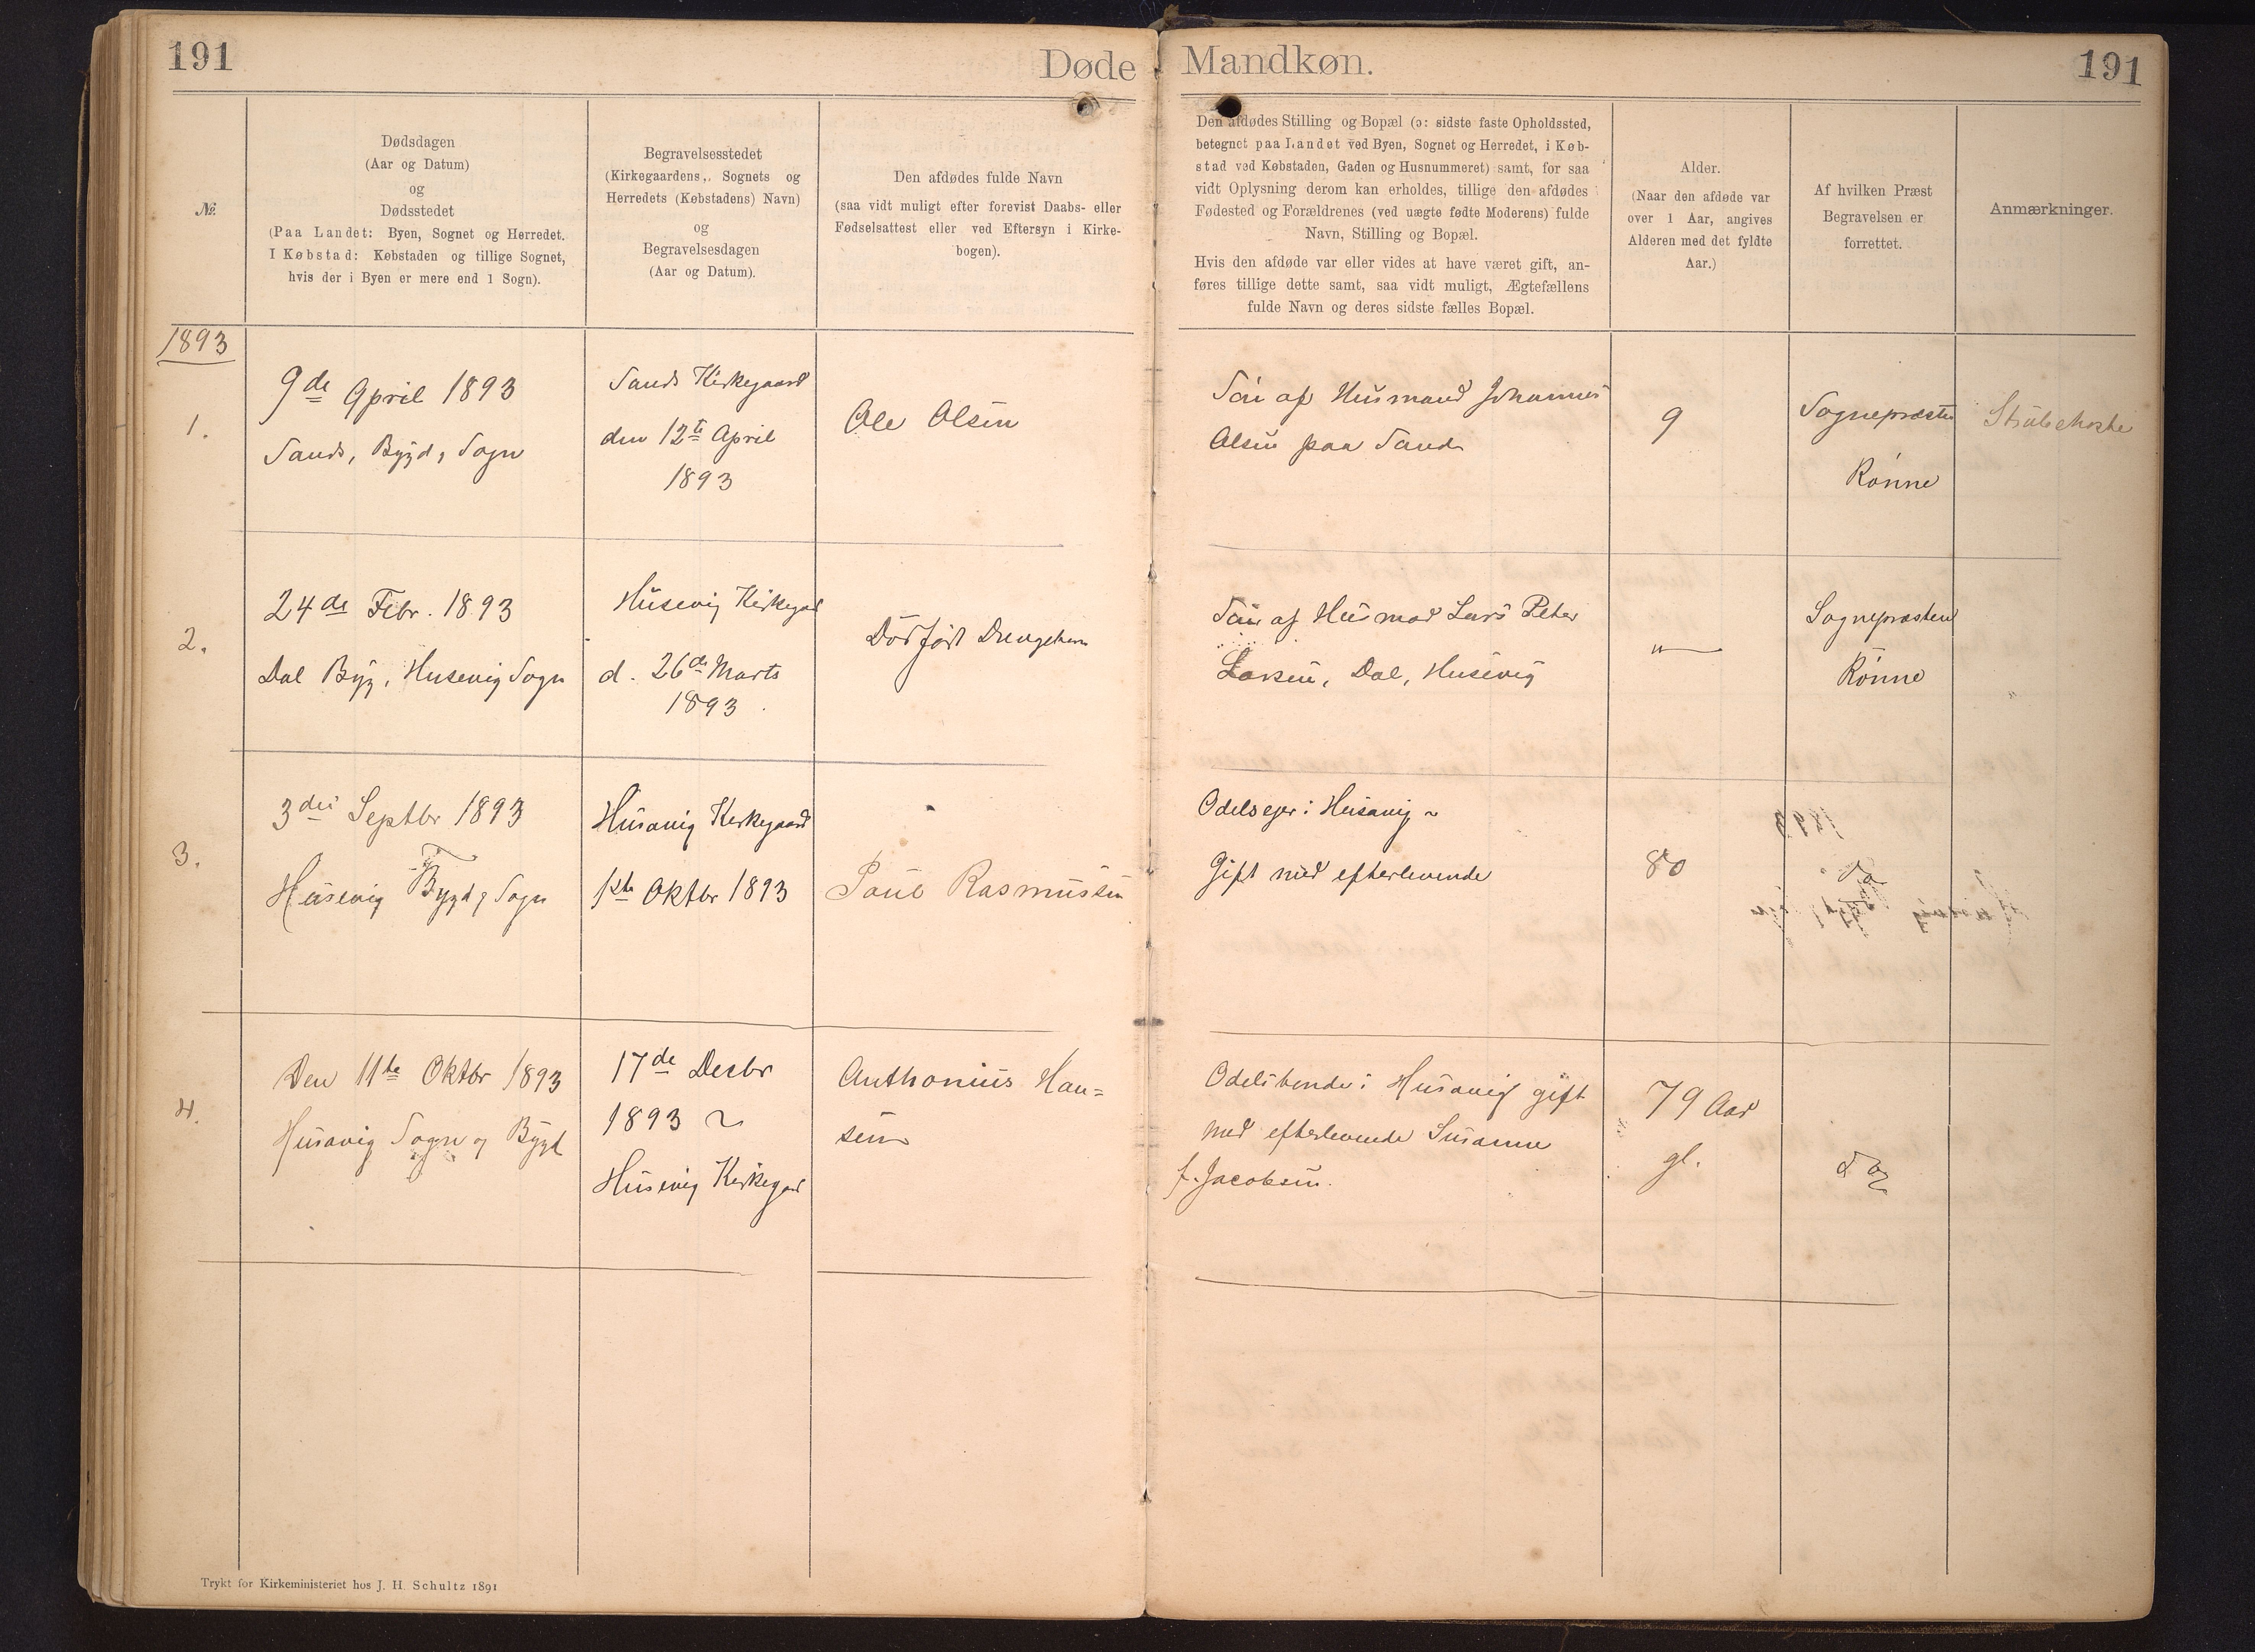 191
Døde
Mandkøn.
191
№.
Dødsdagen
(Aar og Datum)
og
Dødsstedet
(Paa Landet: Byen, Sognet og Herredet.
I Købstad: Købstaden og tillige Sognet,
hvis der i Byen er mere end 1 Sogn).
Begravelsesstedet
(Kirkegaardens, Sognets og
Herredets (Købstadens) Navn)
og
Begravelsesdagen
(Aar og Datum).
Den afdødes fulde Navn
(saa vidt muligt efter forevist Daabs- eller
Fødselsattest eller ved Eftersyn i Kirke-
bogen).
Den afdødes Stilling og Bopæl (ɔ: sidste faste Opholdssted,
betegnet paa Landet ved Byen, Sognet og Herredet, i Køb-
stad ved Købstaden, Gaden og Husnummeret) samt, for saa
vidt Oplysning derom kan erholdes, tillige den afdødes
Fødested og Forældrenes (ved uægte fødte Moderens) fulde
Navn, Stilling og Bopæl.
Hvis den afdøde var eller vides at have været gift, an-
føres tillige dette samt, saa vidt muligt, Ægtefællens
fulde Navn og deres sidste fælles Bopæl.
Alder.
(Naar den afdøde var
over 1 Aar, angives
Alderen med det fyldte
Aar.)
Af hvilken Præst
Begravelsen er
forrettet.
Anmærkninger.
1893
1.
9de April 1893
Sands, Bygd, Sogn
Sands Kirkegaard
den 12te April
1893
Ole Olsen
Søn af Husmand Johannes
Olsen paa Sand
9
Sognepræsten
Rønne
Strubehoste
2.
24de Febr. 1893
Dal Byg, Husevig Sogn
Husevig Kirkegad
d. 26de Marts
1893
Dødfødt Drengebarn
Søn af Husmad Lars Peter
Larsen, Dal, Husevig
"
Sognepræsten
Rønne
"
3.
3die Septbr 1893
Husevig Bygd & Sogn
Husavig Kirkegaard
1ste Oktbr 1893
Poul Rasmussen
Odelsejer i Husavig
Gift med efterlevende
80
do
4.
Den 11te Oktbr 1893
Husavig Sogn og Bygd
17de Decbr
1893
Husevig Kirkegad
Anthonius Han=
sen
Odelsbonde i Husavig gift
med efterlevende Susanne
f. Jacobsen.
79 Aar
gl.
do
Trykt for Kirkeministeriet hos J. H. Schultz 1891